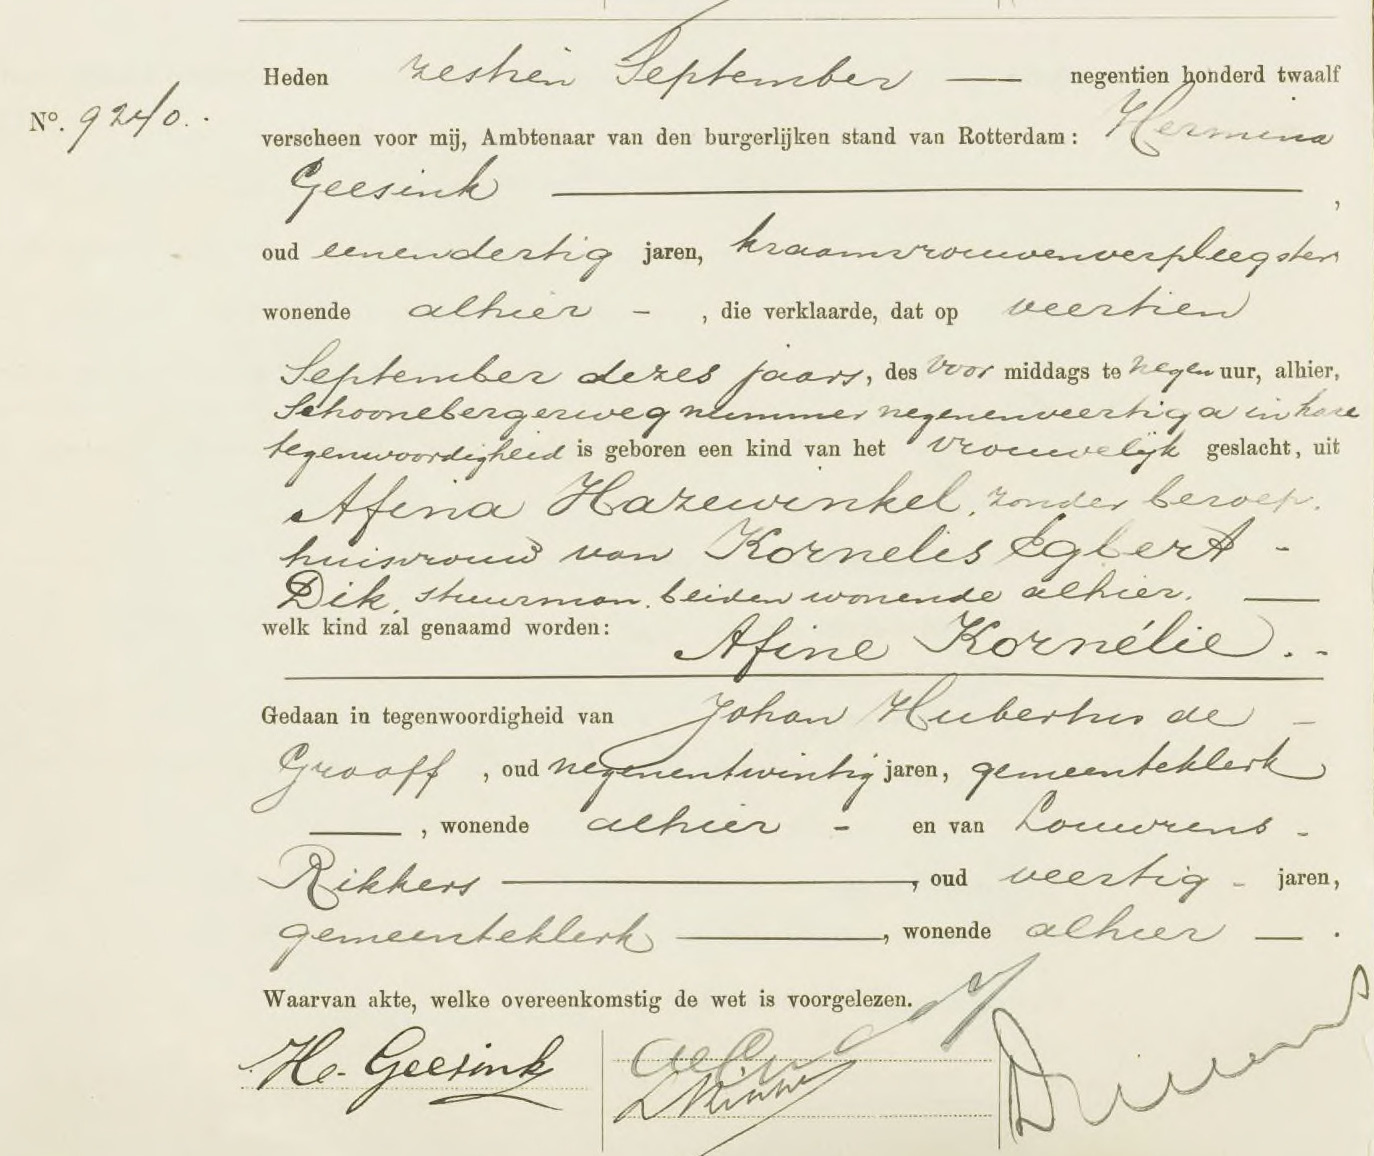 Heden zestien September — negentien honderd twaalf
No. 9240.
verscheen voor mij, Ambtenaar van den burgerlijken stand van Rotterdam: Hermina
Geesink ,
oud eenendertig jaren, kraamvrouwenverpleegster
wonende alhier - , die verklaarde, dat op veertien
September dezes jaars, des voor middags te negen uur, alhier,
Schoonebergerweg nummer negenenveertig a in hare
tegenwoordigheid is geboren een kind van het vrouwelijk geslacht, uit
Afina Hazewinkel, zonder beroep,
huisvrouw van Kornelis Egbert -
Dik, stuurman, beiden wonende alhier. —
welk kind zal genaamd worden: Afine Kornélie. -
Gedaan in tegenwoordigheid van Johan Hubertus de -
Graaff , oud negenentwintig jaren, gemeenteklerk
— , wonende alhier - en van Louwrens -
Rikkers — , oud veertig - jaren,
gemeenteklerk — , wonende alhier — .
Waarvan akte, welke overeenkomstig de wet is voorgelezen.
H. Geesink